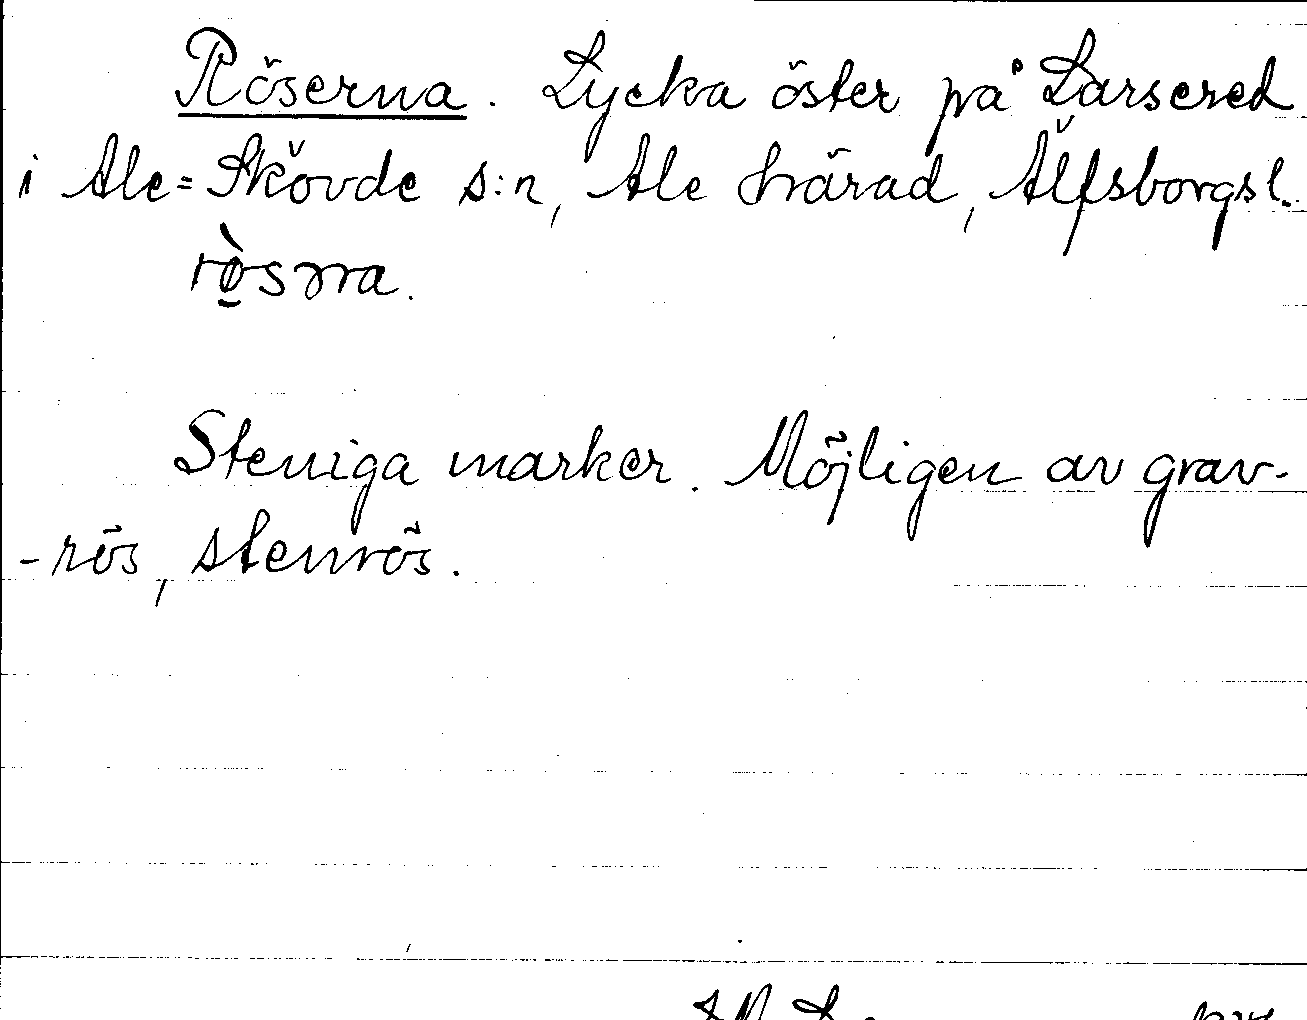 Röserna. Lycka öster på Larsered
i Ale=Skövde s:n, Ale härad, Älfsborgsl.
rø̀sɔra.
Steniga marker. Möjligen av grav-
-rös, stenrös.